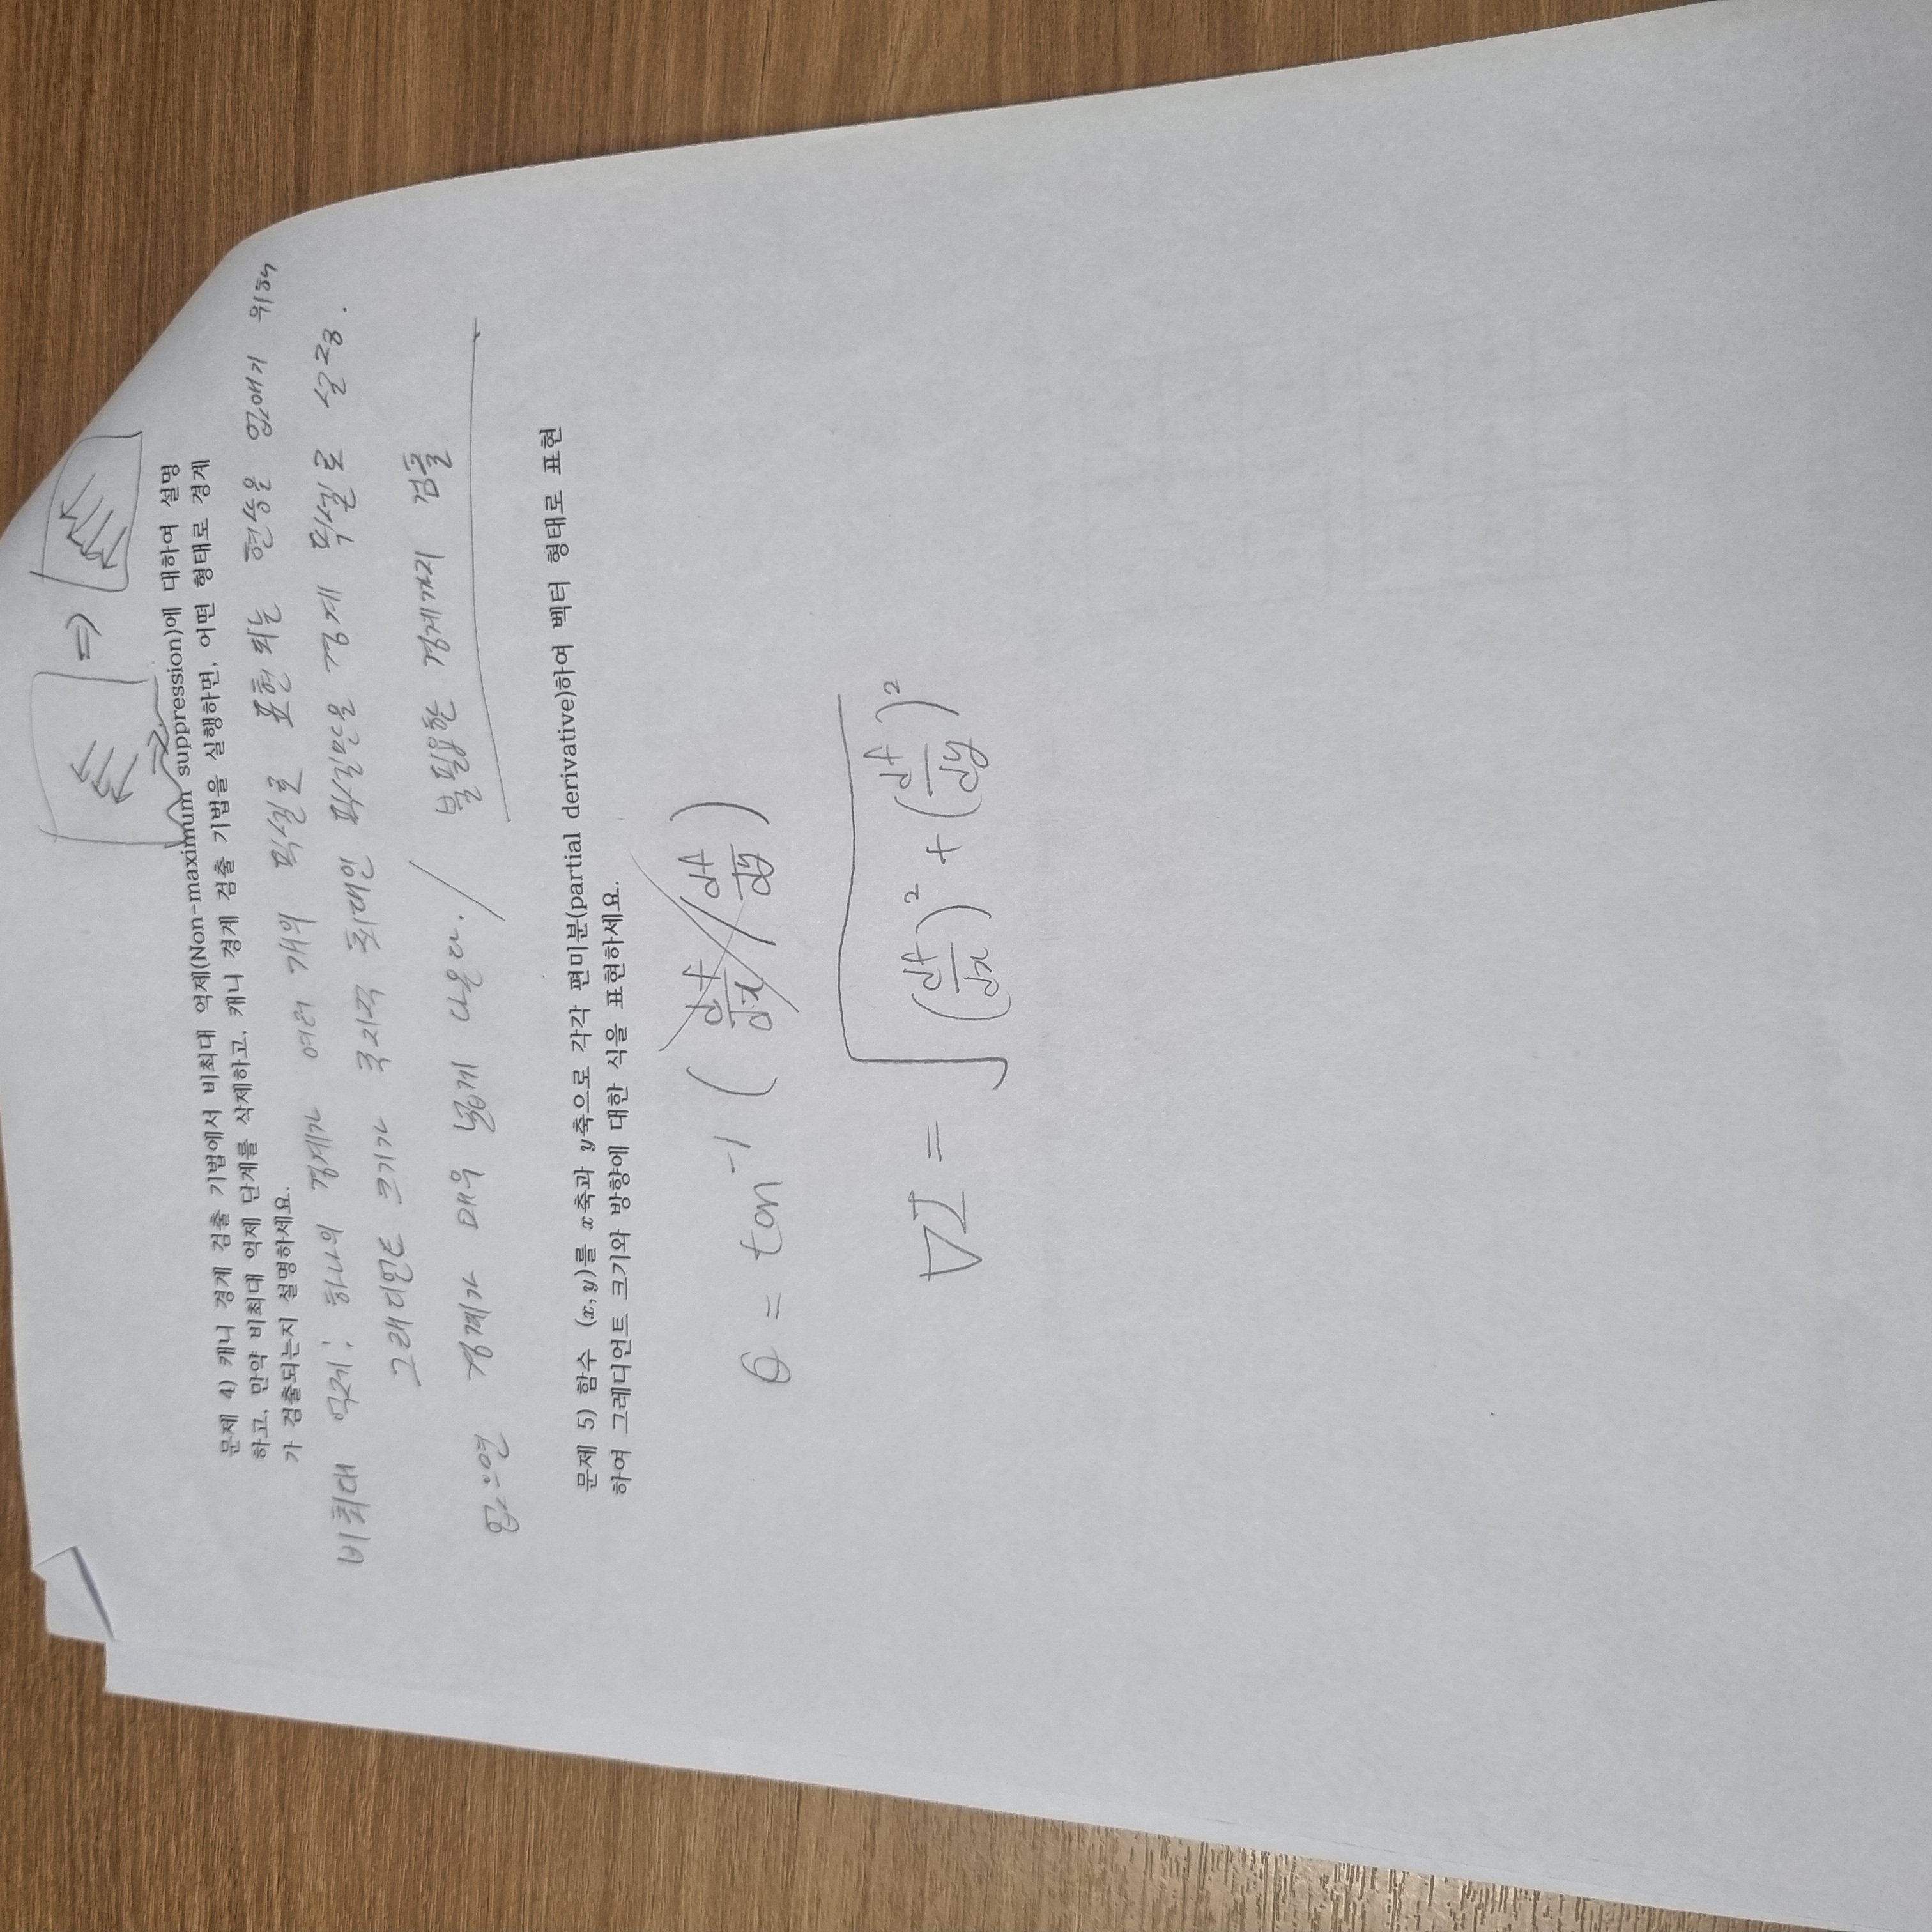 문제 4) 캐니 경계 검출 기법에서 비최대 억제(Non-maximum suppression)에 대하여 설명
하고, 만약 비최대 억제 단계를 삭제하고, 캐니 경계 검출 기법을 실행하면, 어떤 형태로 경계
가 검출되는지 설명하세요.
비최대 억제: 하나의 경계가 여러 개의 픽셀로 표현되는 현상을 없애기 위해
그래디언트 크기가 국지적 최대인 픽셀만을 경계 픽셀로 설정.
없으면 경계가 매우 넓게 나온다. / 불필요한 경계까지 검출
문제 5) 함수 (x, y)를 x축과 y축으로 각각 편미분(partial derivative)하여 벡터 형태로 표현
하여 그레디언트 크기와 방향에 대한 식을 표현하세요.
θ = tan⁻¹ ( df/dx / df/dy )
∇I = √( (df/dx)² + (df/dy)² )